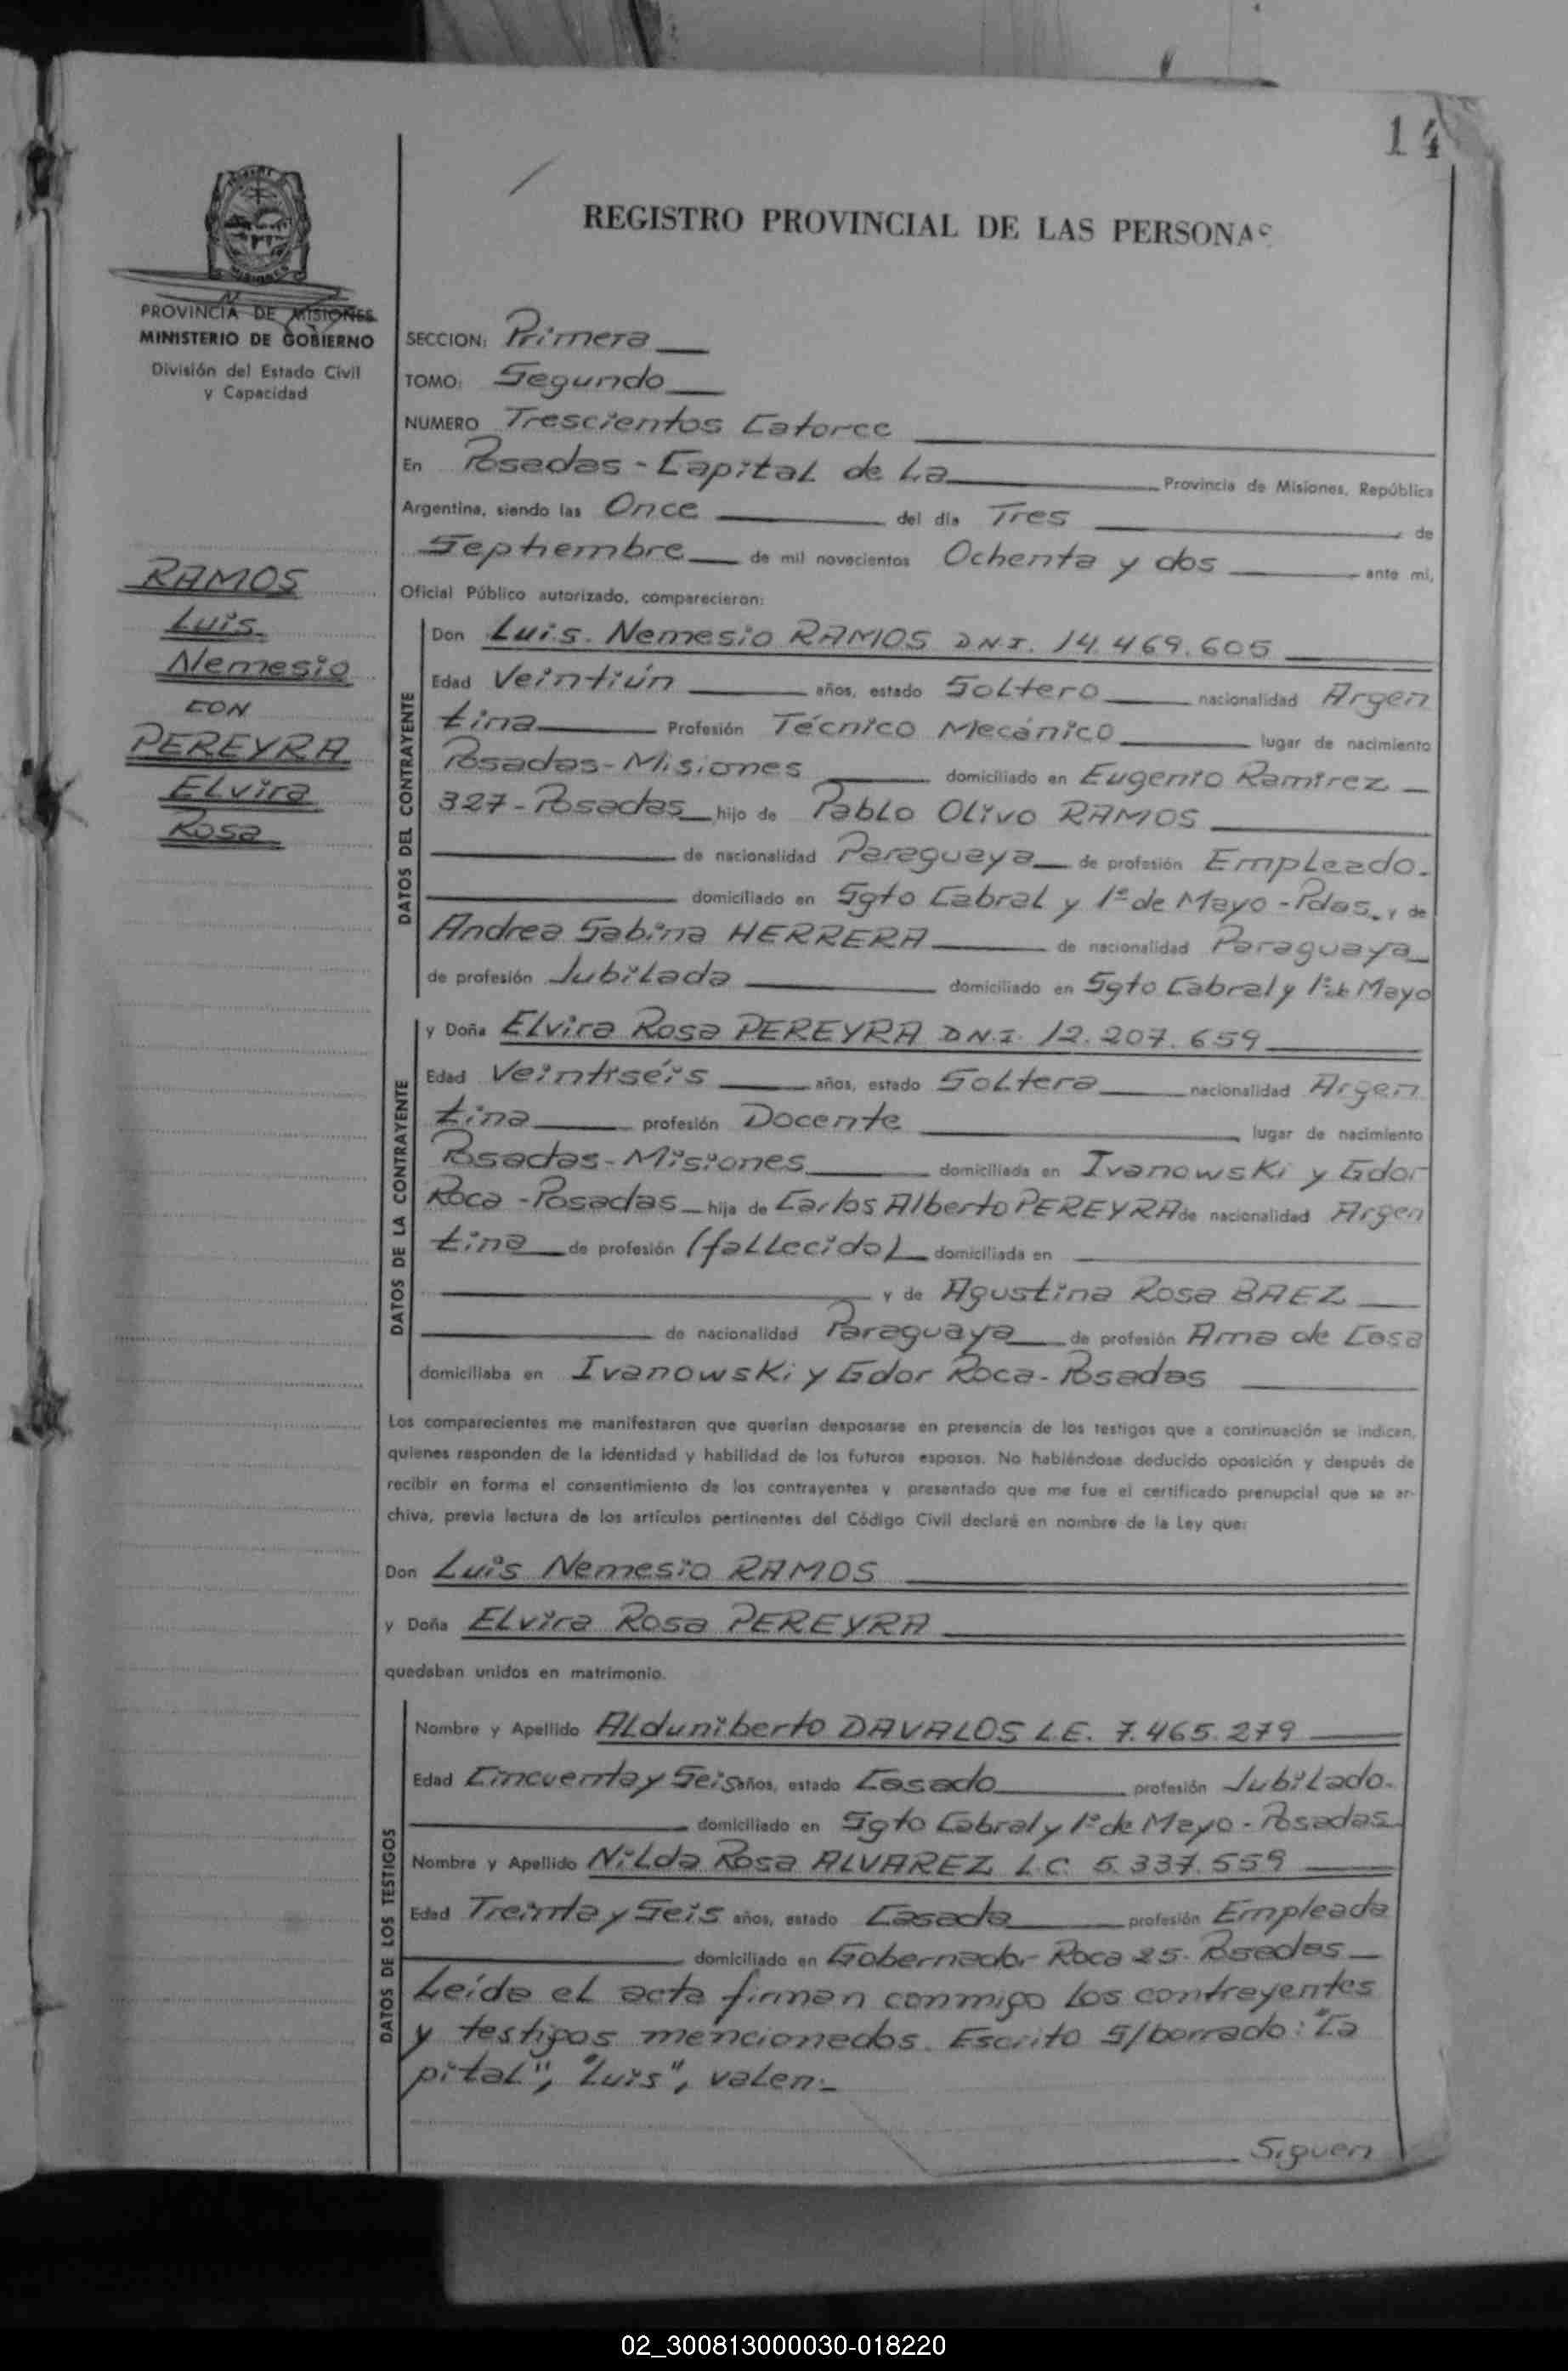 14
REGISTRO PROVINCIAL DE LAS PERSONAS
PROVINCIA DE MISIONES
MINISTERIO DE GOBIERNO
División del Estado Civil
y Capacidad
SECCION: Primera
TOMO: Segundo
NUMERO Trescientos Catorce
En Posadas - Capital de La Provincia de Misiones, República
Argentina, siendo las Once del día Tres de
Septiembre de mil novecientos Ochenta y dos ante mi,
Oficial Público autorizado, comparecieron:
RAMOS
Luis
Nemesio
CON
PEREYRA
Elvira
Rosa
DATOS DEL CONTRAYENTE
Don Luis Nemesio RAMOS DNI. 14.469.605
Edad Veintiún años, estado Soltero nacionalidad Argen
tina Profesión Técnico Mecánico lugar de nacimiento
Posadas - Misiones domiciliado en Eugenio Ramírez
327 - Posadas hijo de Pablo Olivo RAMOS
de nacionalidad Paraguaya de profesión Empleado.
domiciliado en Sgto Cabral y 1º de Mayo - Pdas. y de
Andrea Sabina HERRERA de nacionalidad Paraguaya
de profesión Jubilada domiciliado en Sgto Cabral y 1º de Mayo
DATOS DE LA CONTRAYENTE
y Doña Elvira Rosa PEREYRA DN.I. 12.207.659
Edad Veintiséis años, estado Soltera nacionalidad Argen
tina profesión Docente lugar de nacimiento
Posadas - Misiones domiciliada en Ivanowski y Gdor
Roca - Posadas hija de Carlos Alberto PEREYRA de nacionalidad Argen
tina de profesión (fallecido) domiciliada en
y de Agustina Rosa BAEZ
de nacionalidad Paraguaya de profesión Ama de Casa
domiciliaba en Ivanowski y Gdor Roca - Posadas
Los comparecientes me manifestaron que querían desposarse en presencia de los testigos que a continuación se indican,
quienes responden de la identidad y habilidad de los futuros esposos. No habiéndose deducido oposición y después de
recibir en forma el consentimiento de los contrayentes y presentado que me fue el certificado prenupcial que se ar-
chiva, previa lectura de los artículos pertinentes del Código Civil declaré en nombre de la Ley que:
Don Luis Nemesio RAMOS
y Doña Elvira Rosa PEREYRA
quedaban unidos en matrimonio.
DATOS DE LOS TESTIGOS
Nombre y Apellido Alduniberto DAVALOS L.E. 7.465.279
Edad Cincuenta y Seis años, estado Casado profesión Jubilado.
domiciliado en Sgto Cabral y 1º de Mayo - Posadas
Nombre y Apellido Nilda Rosa ALVAREZ L.C. 5.337.559
Edad Treinta y Seis años, estado Casada profesión Empleada
domiciliado en Gobernador Roca 25. Posadas
Leída el acta firman conmigo los contrayentes
y testigos mencionados. Escrito s/borrado: "Ca
pital", "Luis", valen.-
Siguen
02_300813000030-018220